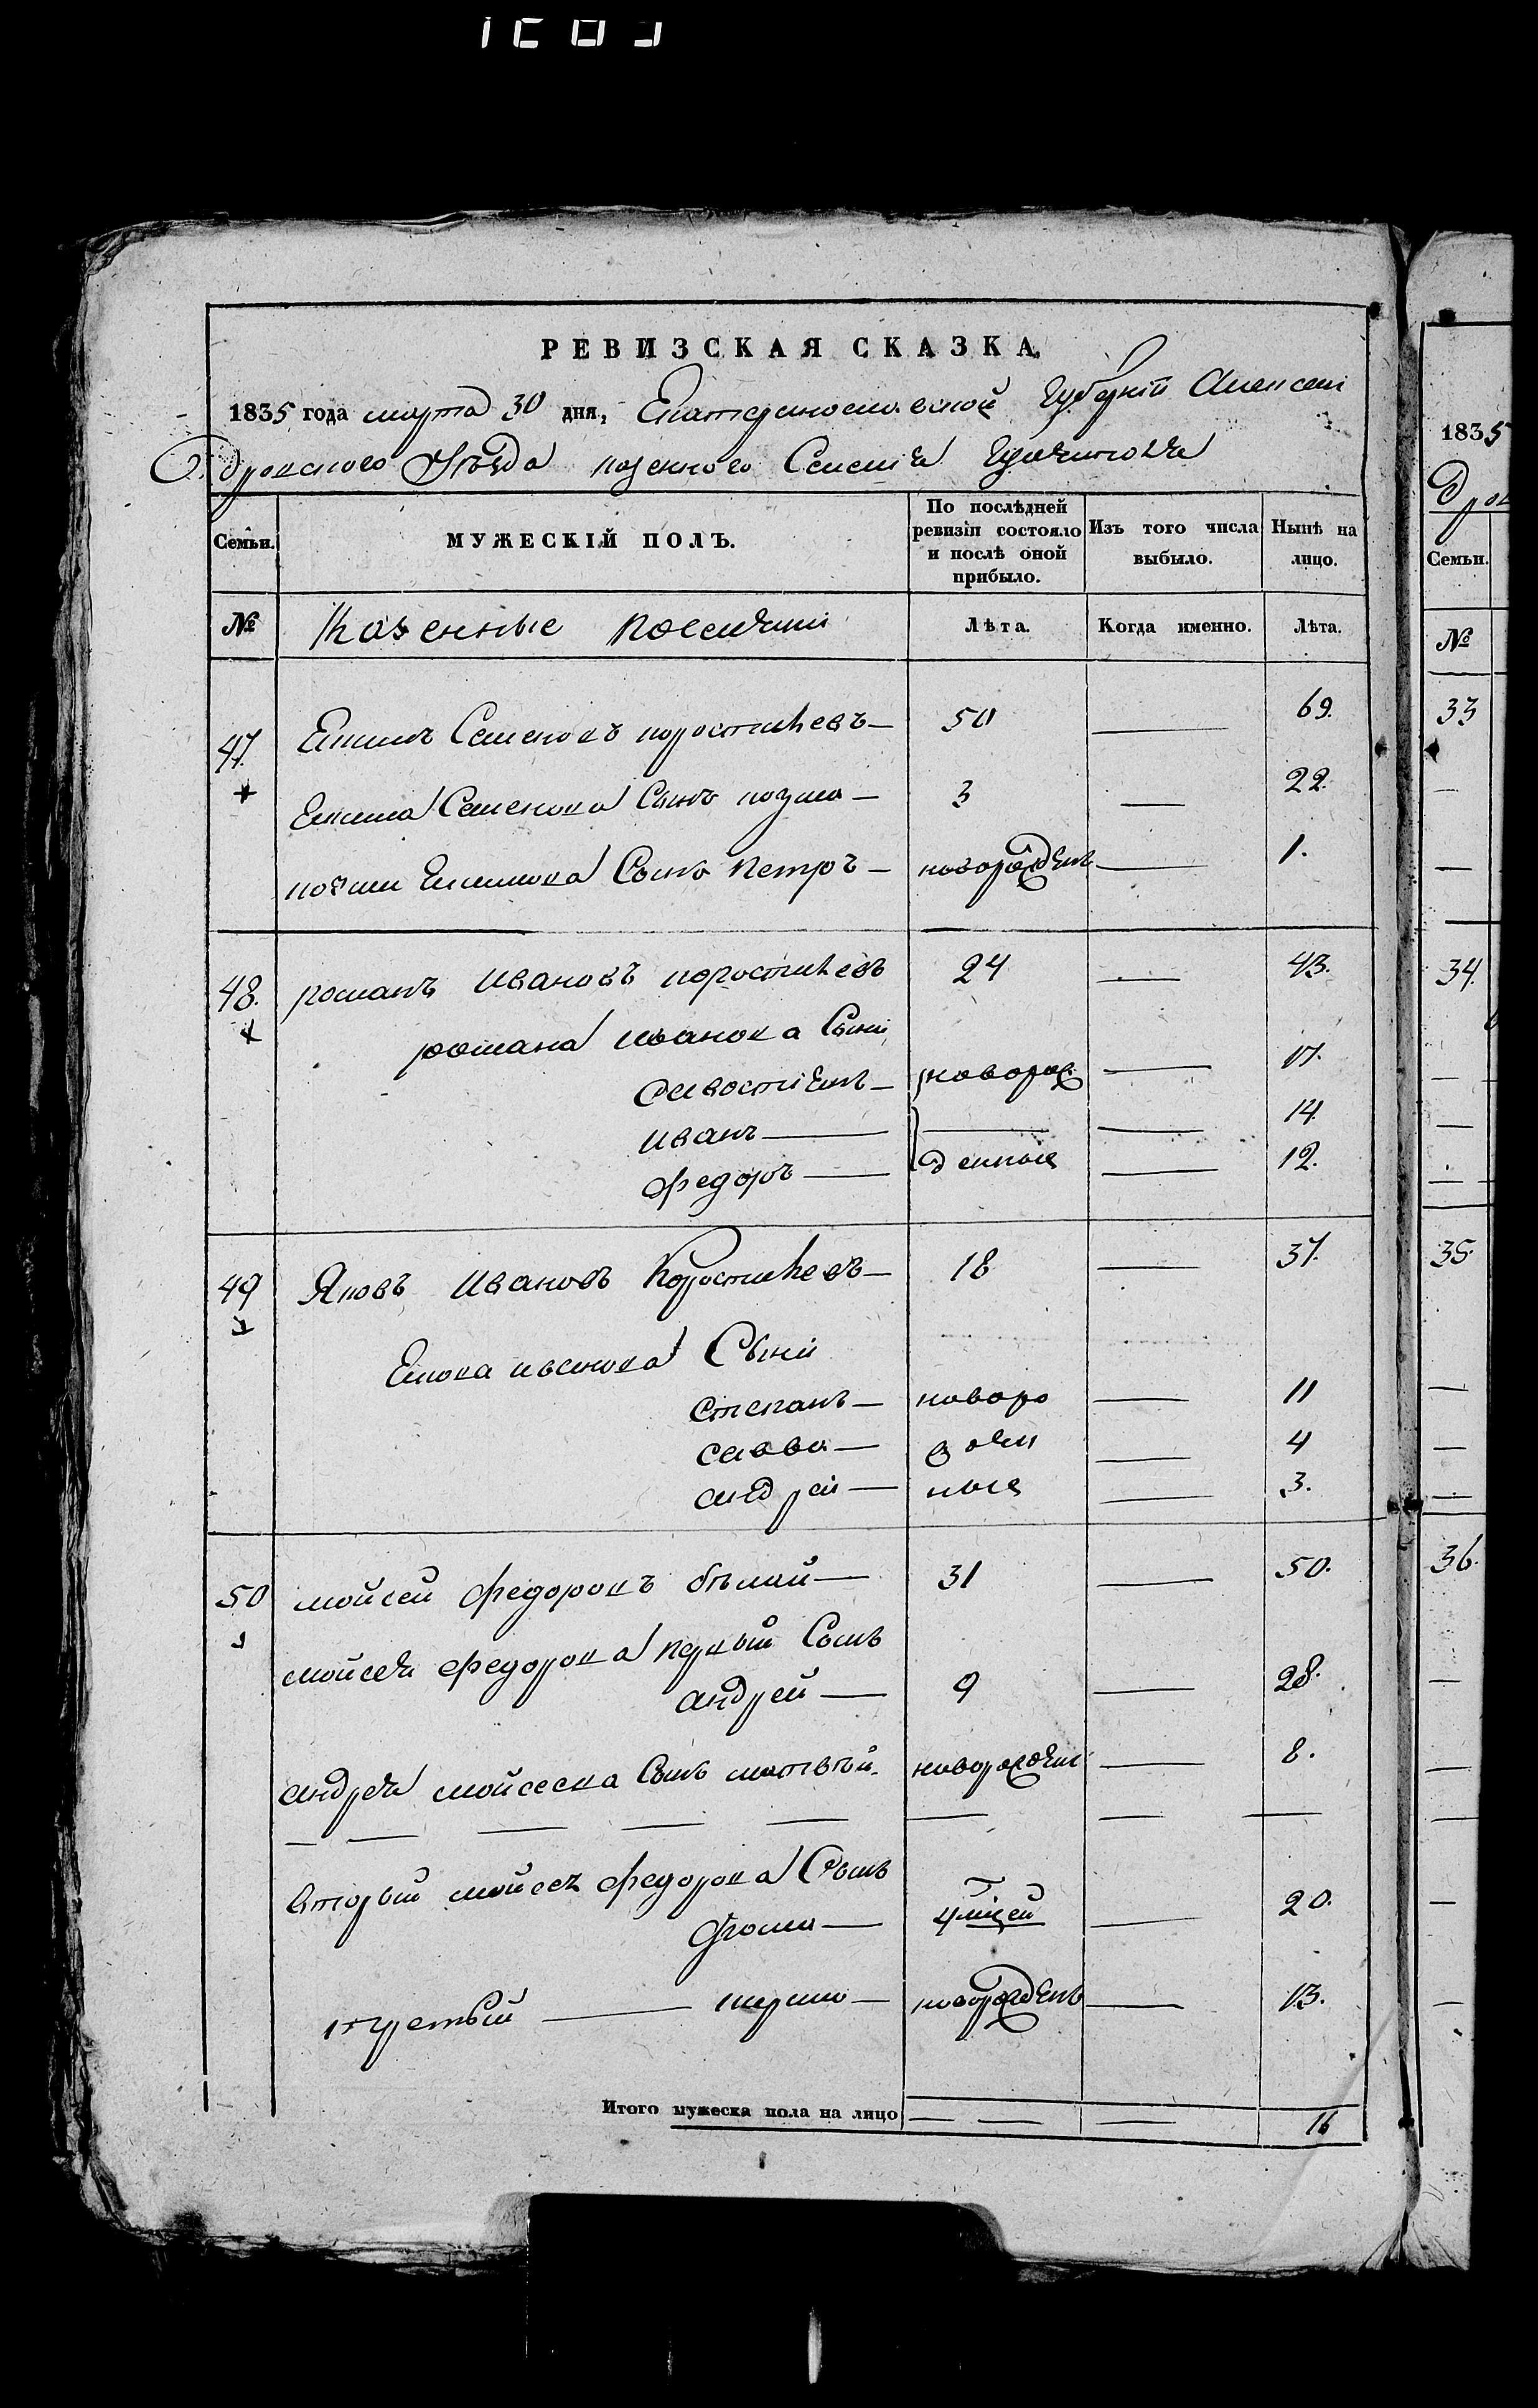 РЕВИЗСКАЯ СКАЗКА,
1835 года марта 30 дня, Екатеринославской Губернїи Алексан
дровского Уѣзда казенного Селенїя
Семьи.
МУЖЕСКІЙ ПОЛЪ.
По послѣдней ревизіи состояло и послѣ оной прибыло.
Изъ того числа выбыло.
Нынѣ на лицо.
№
Казенные поселяни
Лѣта.
Когда именно.
Лѣта.
47. Екимъ Семеновъ коростиневъ — 50 — 69.
Екима Семенова Сынъ козма — 3 — 22.
козми Екимова Сынъ петръ — новорожденъ — 1.
48. романъ Ивановъ коростиневъ 24 — 43.
романа иванова Сыни
Савостіянъ — новорож — 17.
иванъ — 14.
федоръ — денные — 12.
49 Яковъ Ивановъ Коростиневъ — 18 — 37.
Якова иванова Сыни
степанъ — новоро — 11
савва — жден — 4
андрей — ные — 3.
50 мойсей федоровъ бѣлай — 31 — 50.
мойсея федорова первый Сынъ
андрей — 9 — 28.
андрея мойсеева Сынъ матвѣй. новорожден — 8.
вторый мойсея федорова Сынъ
Фома — 20.
третьий — новорожденъ — 13.
Итого мужеска пола на лицо 16
1835
Дров
Семьи.
№
33
34.
35.
36.